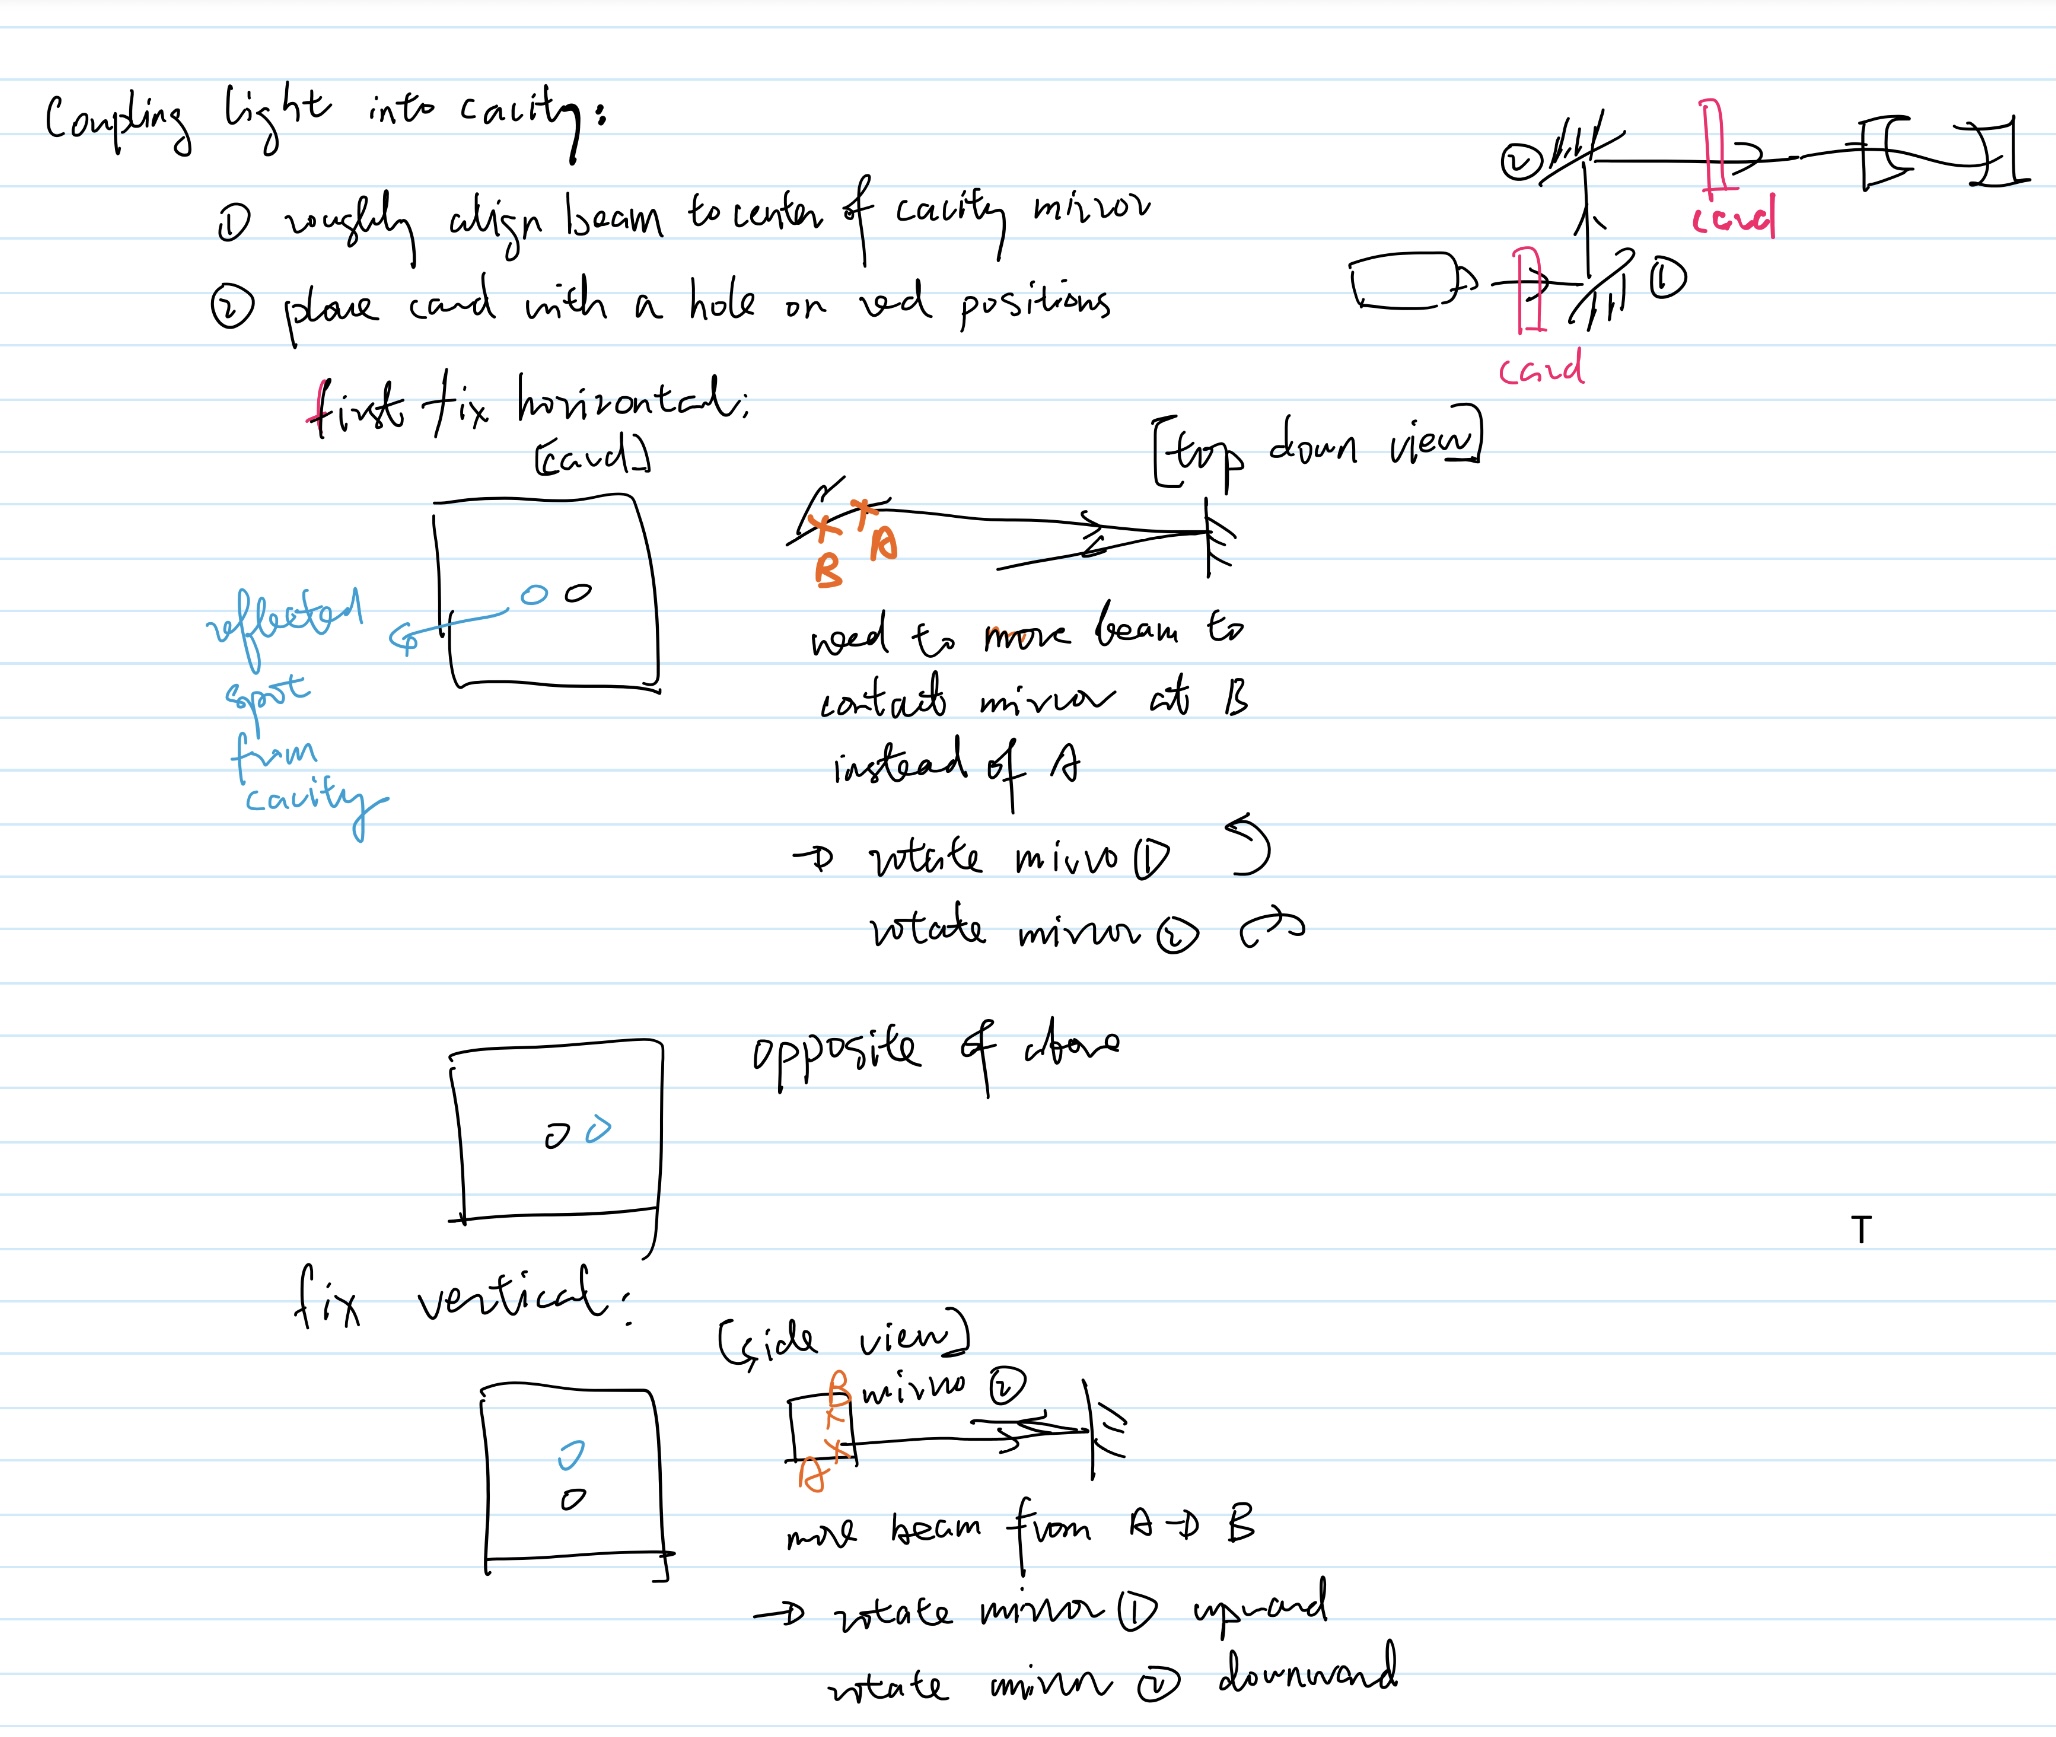 Coupling light into cavity:
① roughly align beam to center of cavity mirror
② place card with a hole on red positions
② card
① card
first fix horizontal:
[card]
[top down view]
B A
reflected
spot
from
cavity
need to move beam to
contact mirror at B
instead of A
→ rotate mirro ①
rotate mirror ②
opposite of above
T
fix vertical:
[side view]
B mirro ②
A
move beam from A → B
→ rotate mirror ① upward
rotate mirror ② downward